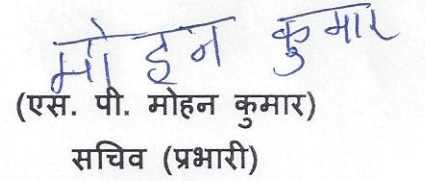 मोहन कुमार
(एस. पी. मोहन कुमार)
सचिव (प्रभारी)